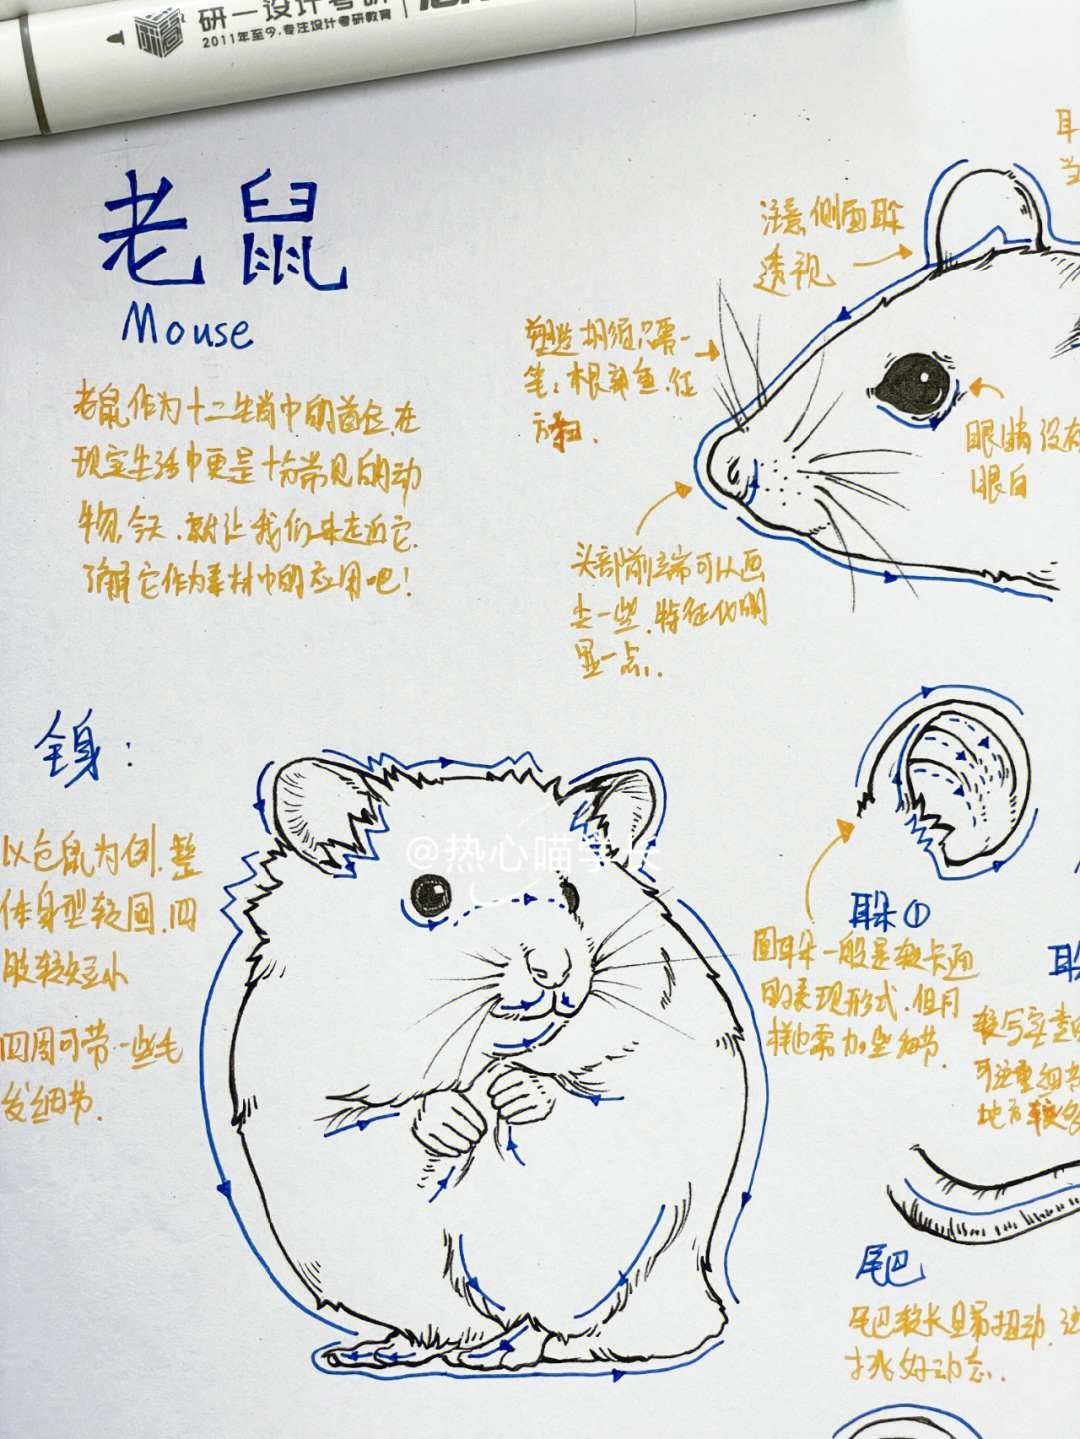 研一设计考研
2011年至今,专注设计考研教育
老鼠
Mouse
老鼠作为十二生肖中的首位,在
现实生活中更是十分常见的动
物,今天,就让我们来走近它,
了解它作为素材中的应用吧!
注意侧面耳朵
透视
塑造胡须只需一
笔,
眼睛没有
眼白
头部前端可以画
尖一些,特征化明
显一点.
全身:
以仓鼠为例,整
体身型较圆,四
肢较短小
四周可带一些毛
发细节.
@热心喵学长
耳朵①
圆耳朵一般是较卡通
的表现形式,但同
样也需加些细节.
较写实
可注重细节
地方较多
尾巴
尾巴较长且易扭动,
找好动态.